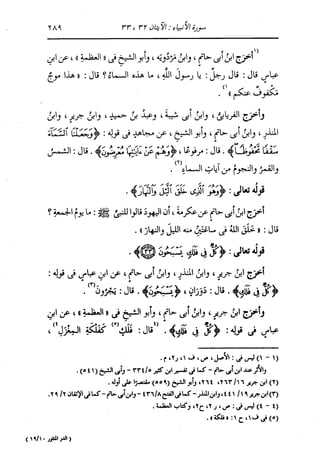 سورة الأنبياء : الآيتان ٣٢ ، ٣٣
٢٨٩
(١) أخرَج ابنُ أبى حاتمٍ ، وابنُ مَرْدُويَه ، وأبو الشيخِ فى « العظمةِ » ، عن ابنِ
عباسٍ قال : قال رجلٌ : يا رسولَ اللَّهِ ، ما هذه السماءُ ؟ قال : « هذا موجٌ
مَكْفوفٌ عنكم » (١) .
وأخرَج الفريابىُّ ، وابنُ أبى شيبةَ ، وعبدُ بنُ حميدٍ ، وابنُ جريرٍ ، وابنُ
المنذرِ ، وابنُ أبى حاتمٍ ، وأبو الشيخِ ، عن مجاهدٍ فى قولِه : ﴿ وَجَعَلْنَا ٱلسَّمَآءَ
سَقْفًا مَّحْفُوظًا ﴾ . قال : مرفوعًا ، ﴿ وَهُمْ عَنْ ءَايَٰتِهَا مُعْرِضُونَ ﴾ . قال : الشمسُ
والقمرُ والنجومُ من آياتِ السماءِ (٢) .
قولُه تعالى : ﴿ وَهُوَ ٱلَّذِى خَلَقَ ٱلَّيْلَ وَٱلنَّهَارَ ﴾ .
أخرَج ابنُ أبى حاتمٍ عن عكرمةَ ، أن اليهودَ قالوا للنبىِّ ﷺ : ما يومُ الجمعةِ ؟
قال : « خلَق اللَّهُ فى ساعتَينِ منه الليلَ والنهارَ » .
قولُه تعالى : ﴿ كُلٌّ فِى فَلَكٍ يَسْبَحُونَ ٣٣ ﴾ .
أخرَج ابنُ جريرٍ ، وابنُ المنذرِ ، وابنُ أبى حاتمٍ ، عن ابنِ عباسٍ فى قولِه :
﴿ كُلٌّ فِى فَلَكٍ ﴾ . قال : دَوَرَانٍ ، ﴿ يَسْبَحُونَ ﴾ . قال : يَجْرُون (٣) .
وأخرَج ابنُ جريرٍ ، وابنُ أبى حاتمٍ ، وأبو الشيخِ فى « العظمةِ » ، عن ابنِ
عباسٍ فى قولِه : ﴿ كُلٌّ فِى فَلَكٍ ﴾ . (٤) قال : فلَكٌ (٥) كفَلْكَةِ المِغْزَلِ (٤) ،
(١ - ١) ليس فى : الأصل ، ص ، ف ١ ، ر٢ ، م .
والأثر عند ابن أبى حاتم - كما فى تفسير ابن كثير ٥/ ٣٣٤ - وأبى الشيخ (٥٤١) .
(٢) ابن جرير ١٦/ ٢٦٣، ٢٦٤ ، وأبو الشيخ (٥٥٩) مقتصرًا على أوله .
(٣) ابن جرير ١٩/ ٤٤١، وابن المنذر - كما فى الفتح ٨/ ٤٣٦ - وابن أبى حاتم - كما فى الإتقان ٢/ ٢٩.
(٤ - ٤) ليس فى : ص ، ر٢ ، ح٢ ، وكتاب العظمة .
(٥) فى ف١ ، ح ١: « فلكة » .
( الدر المنثور ١٠/ ١٩ )